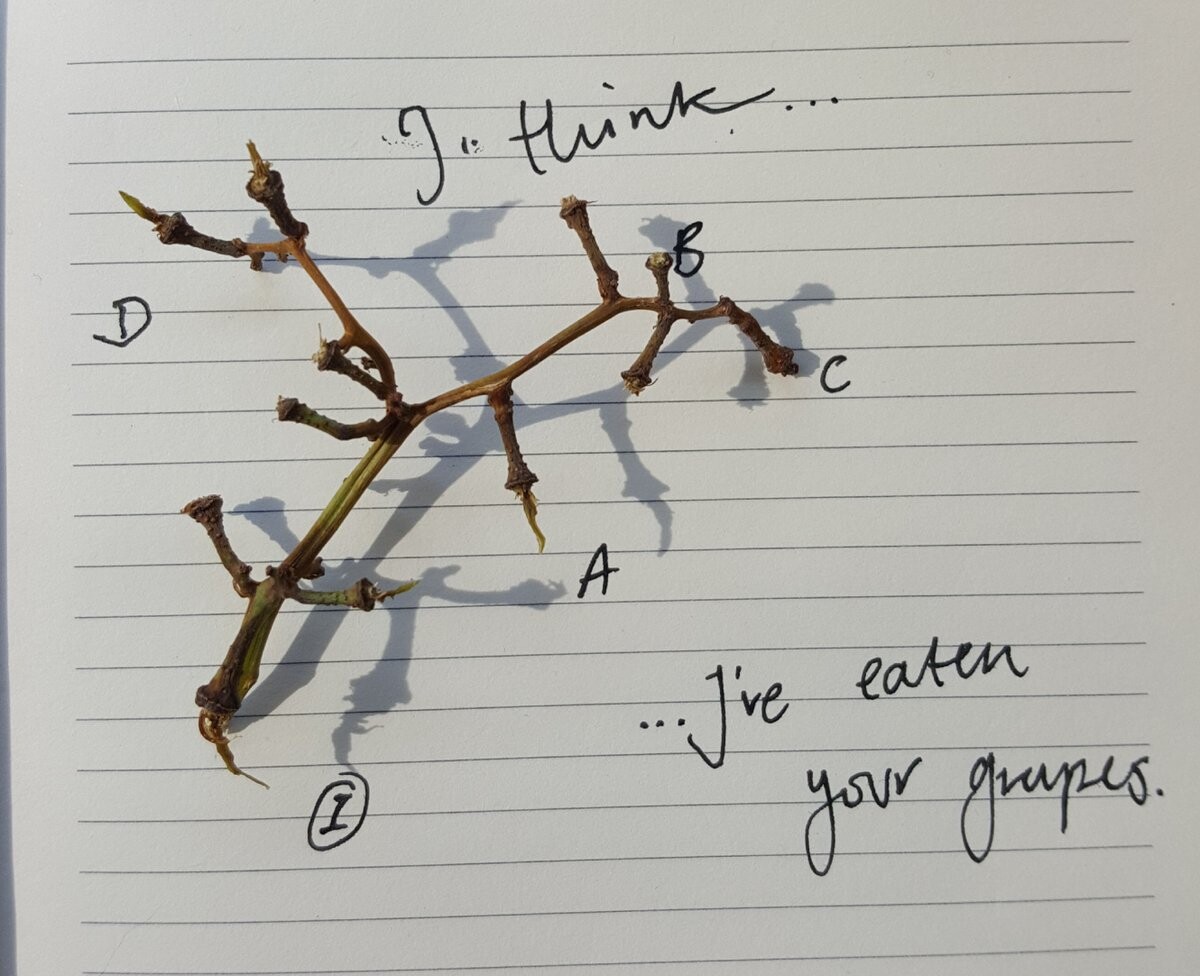 I think...
B
D
C
A
...I've eaten
your grapes.
I